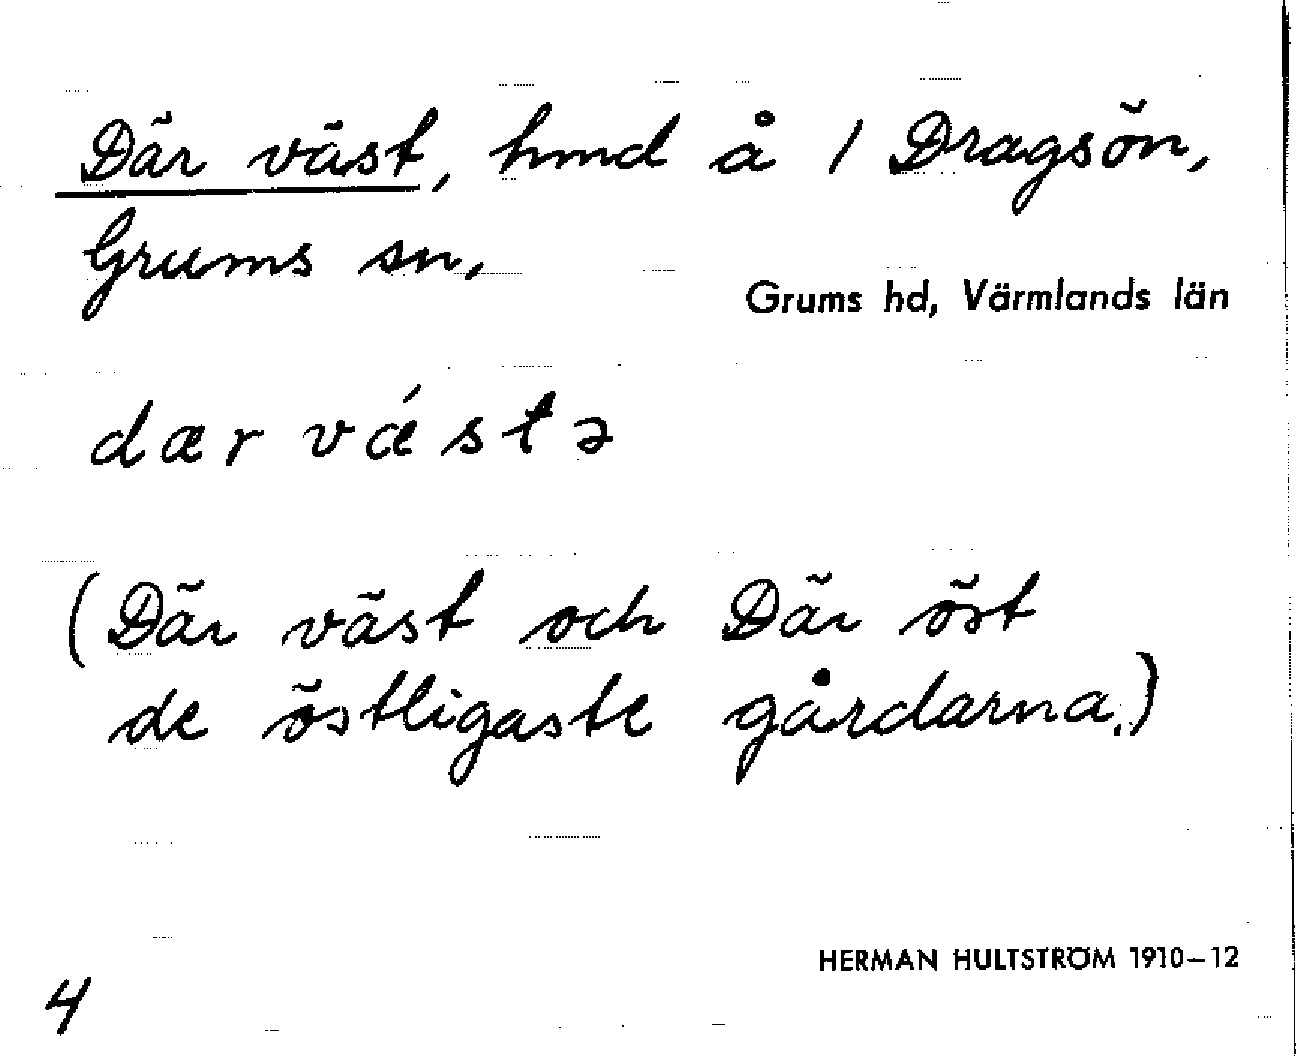 Där väst, hmd å 1 Dragsön,
Grums sn,
Grums hd, Värmlands län
dær vǽstə
(Där väst och Där öst
de östligaste gårdarna.)
HERMAN HULTSTRÖM 1910–12
4